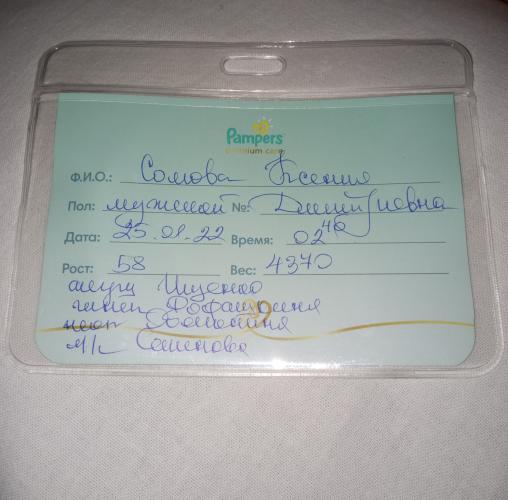 Pampers
premium care
Ф.И.О.: Сомова Ксения
Пол: мужской №: Дмитриевна
Дата: 25.01.22 Время: 02 40
Рост: 58 Вес: 4370
акуш Ищенко
гинек
неон
м/с Семенова